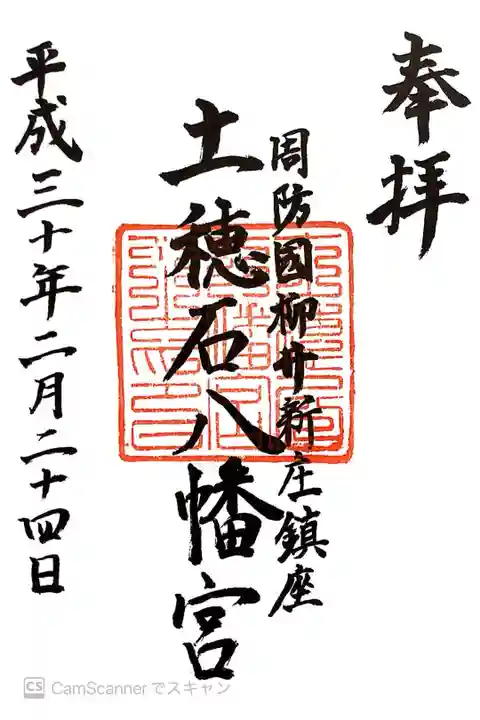 奉拝
周防國柳井新庄鎮座
土穂石八幡宮
平成三十年二月二十四日
CS CamScanner でスキャン